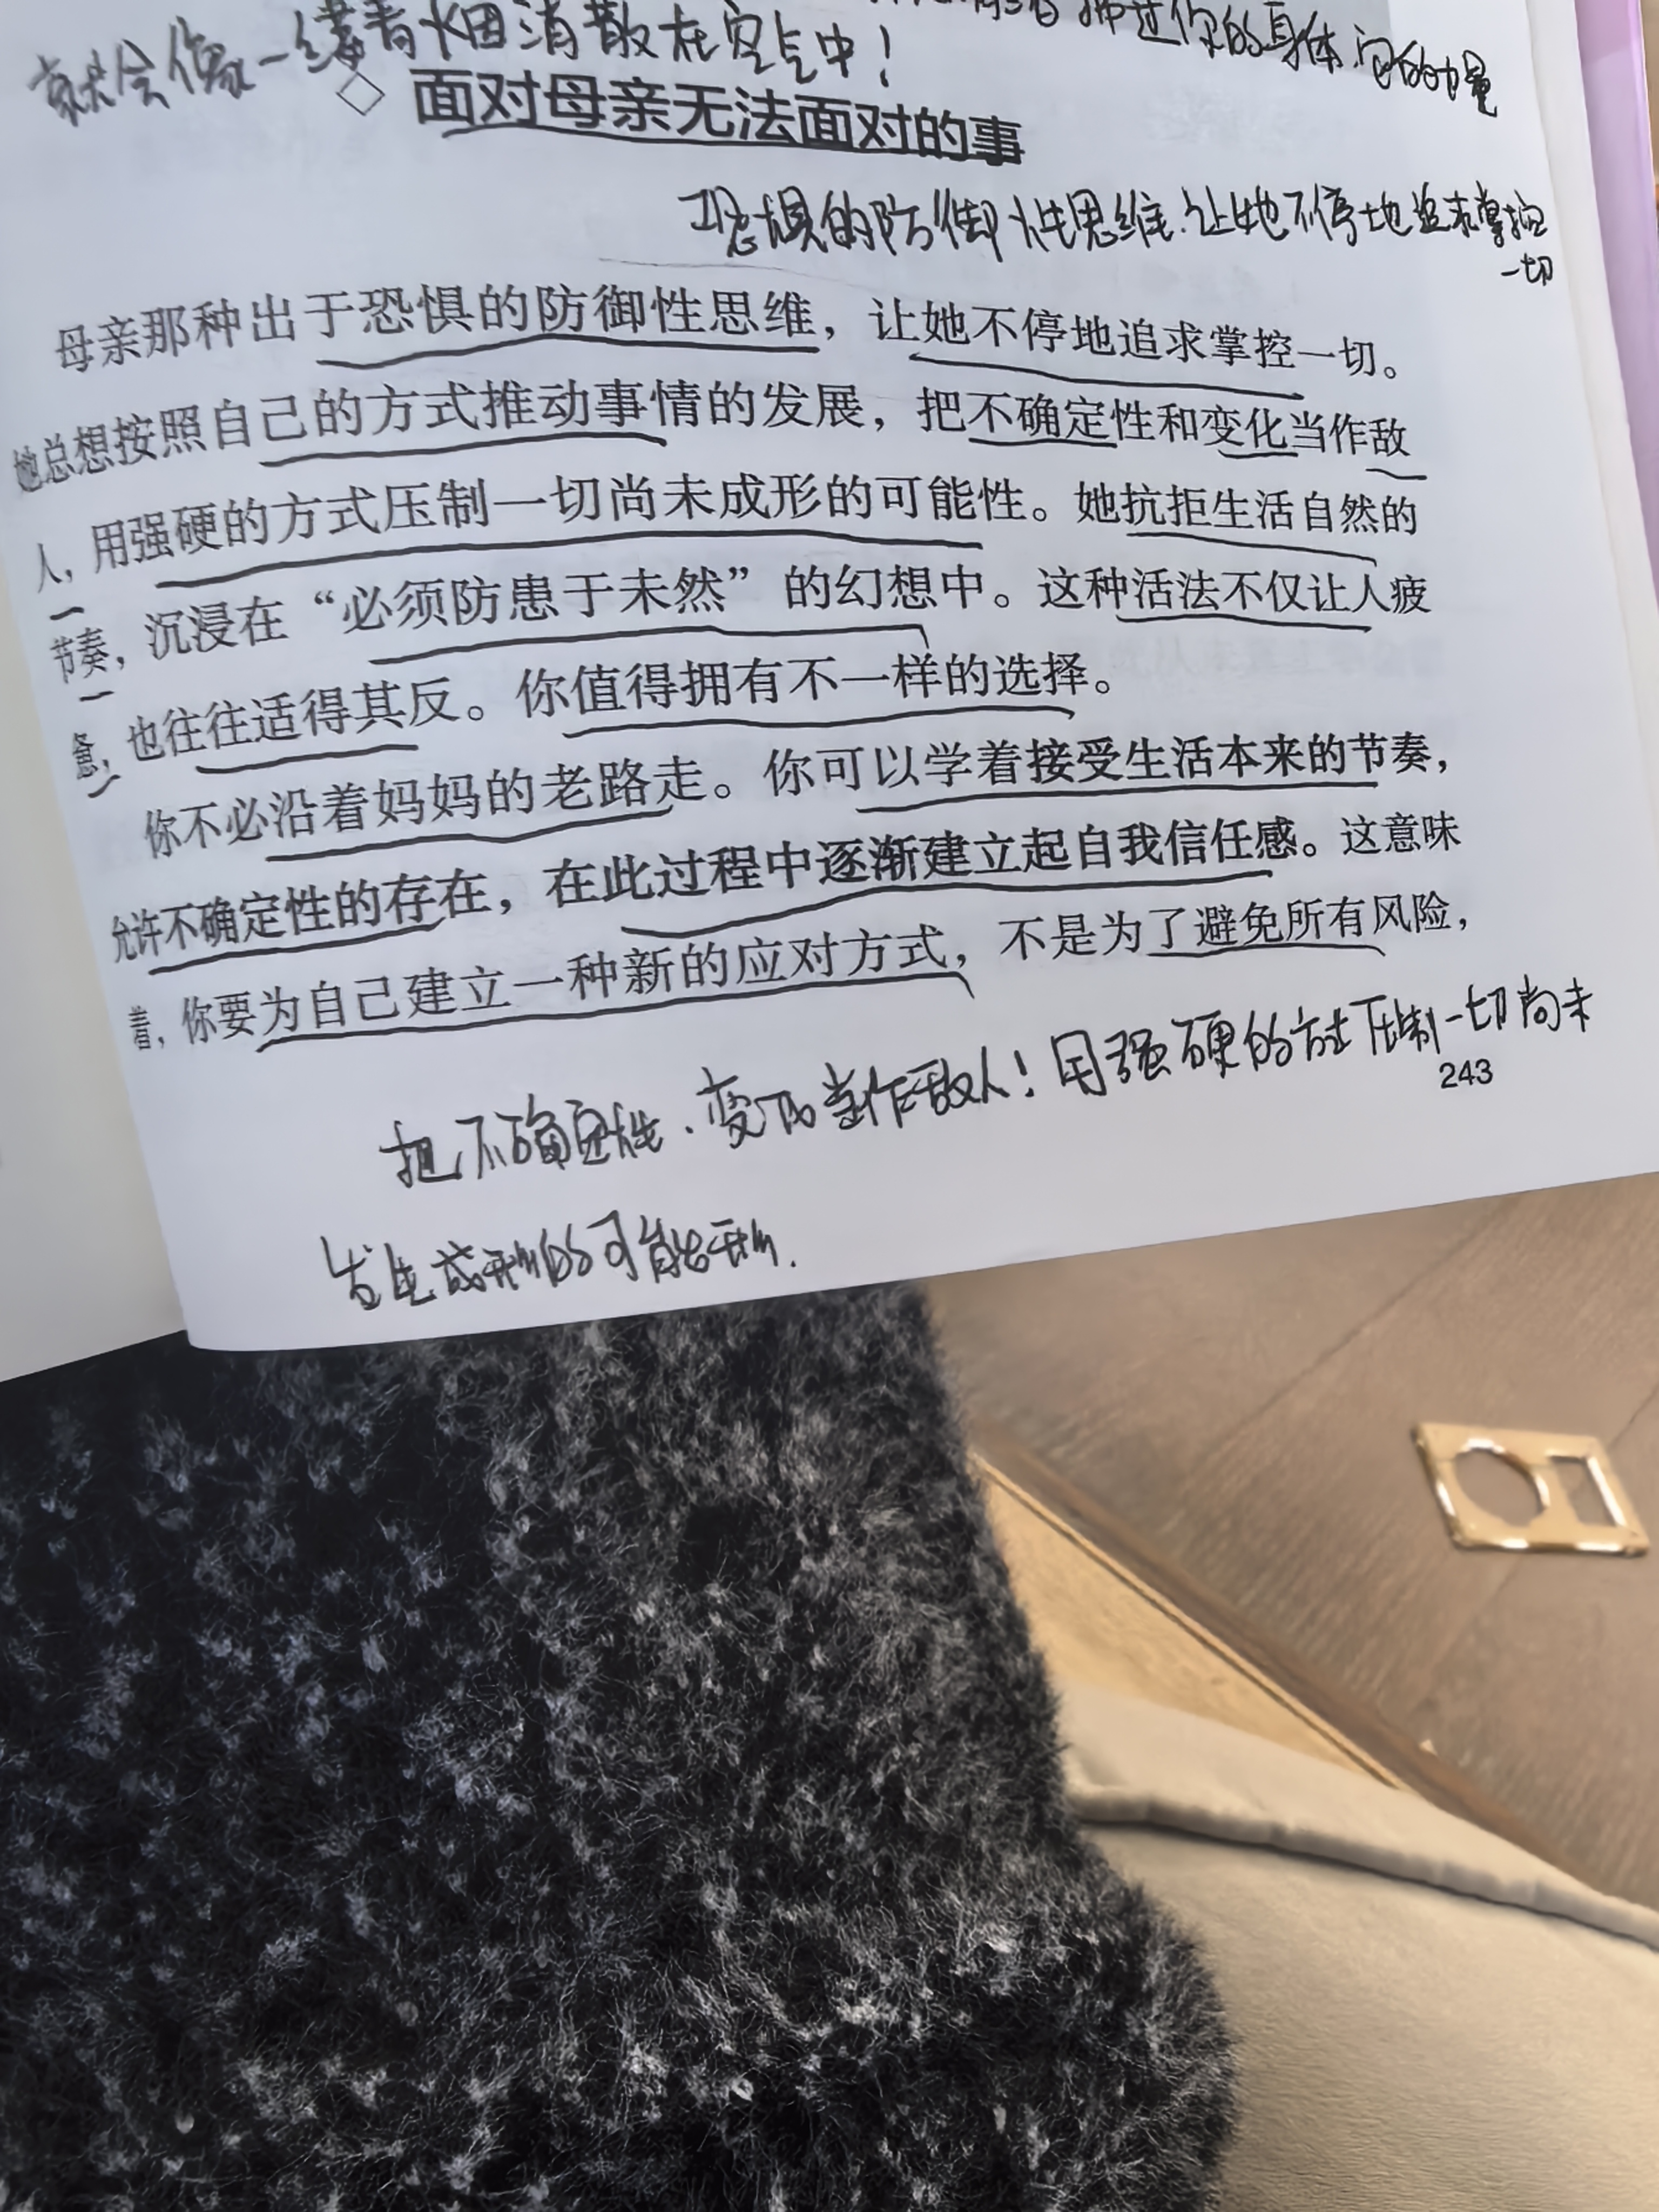 拂过你的身体
就会像一缕青烟消散在空气中！
◇ 面对母亲无法面对的事
恐惧的防御性思维.让她不停地追求掌控
一切
母亲那种出于恐惧的防御性思维，让她不停地追求掌控一切。
她总想按照自己的方式推动事情的发展，把不确定性和变化当作敌
人，用强硬的方式压制一切尚未成形的可能性。她抗拒生活自然的
节奏，沉浸在“必须防患于未然”的幻想中。这种活法不仅让人疲
惫，也往往适得其反。你值得拥有不一样的选择。
你不必沿着妈妈的老路走。你可以学着接受生活本来的节奏，
允许不确定性的存在，在此过程中逐渐建立起自我信任感。这意味
着，你要为自己建立一种新的应对方式，不是为了避免所有风险，
把不确定性.变化当作敌人！用强硬的方式压制一切尚未
243
发生成形的可能性.